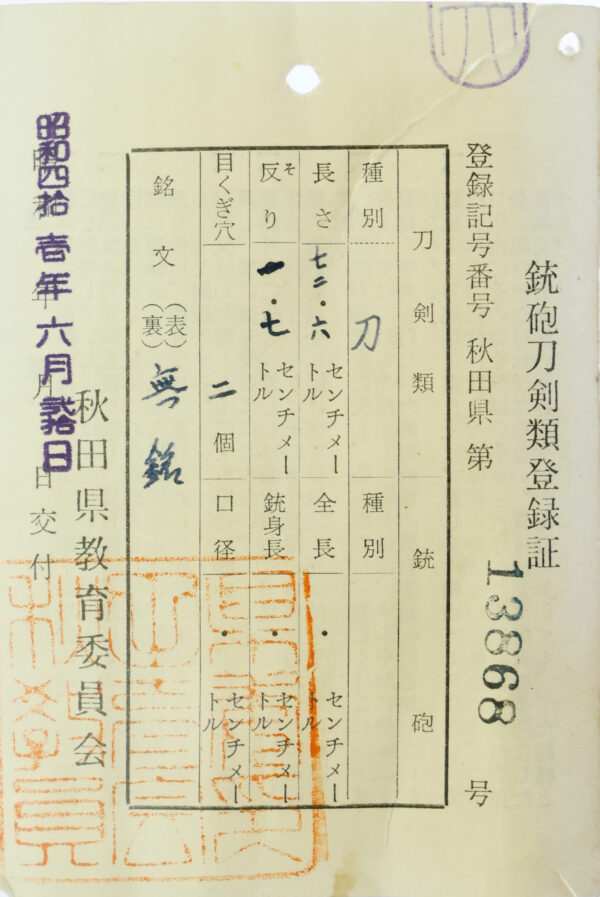 銃砲刀剣類登録証
登録記号番号 秋田県 第 13868 号
刀剣類 銃砲
種別 刀 種別
長さ 七二・六 センチメートル 全長 ・ センチメートル
反り そ 一・七 センチメートル 銃身長 ・ センチメートル
目くぎ穴 二 個 口径 ・ センチメートル
銘文 (表) (裏) 無銘
秋田県教育委員会
昭和四拾壱年六月弐拾日
昭和 年 月 日交付